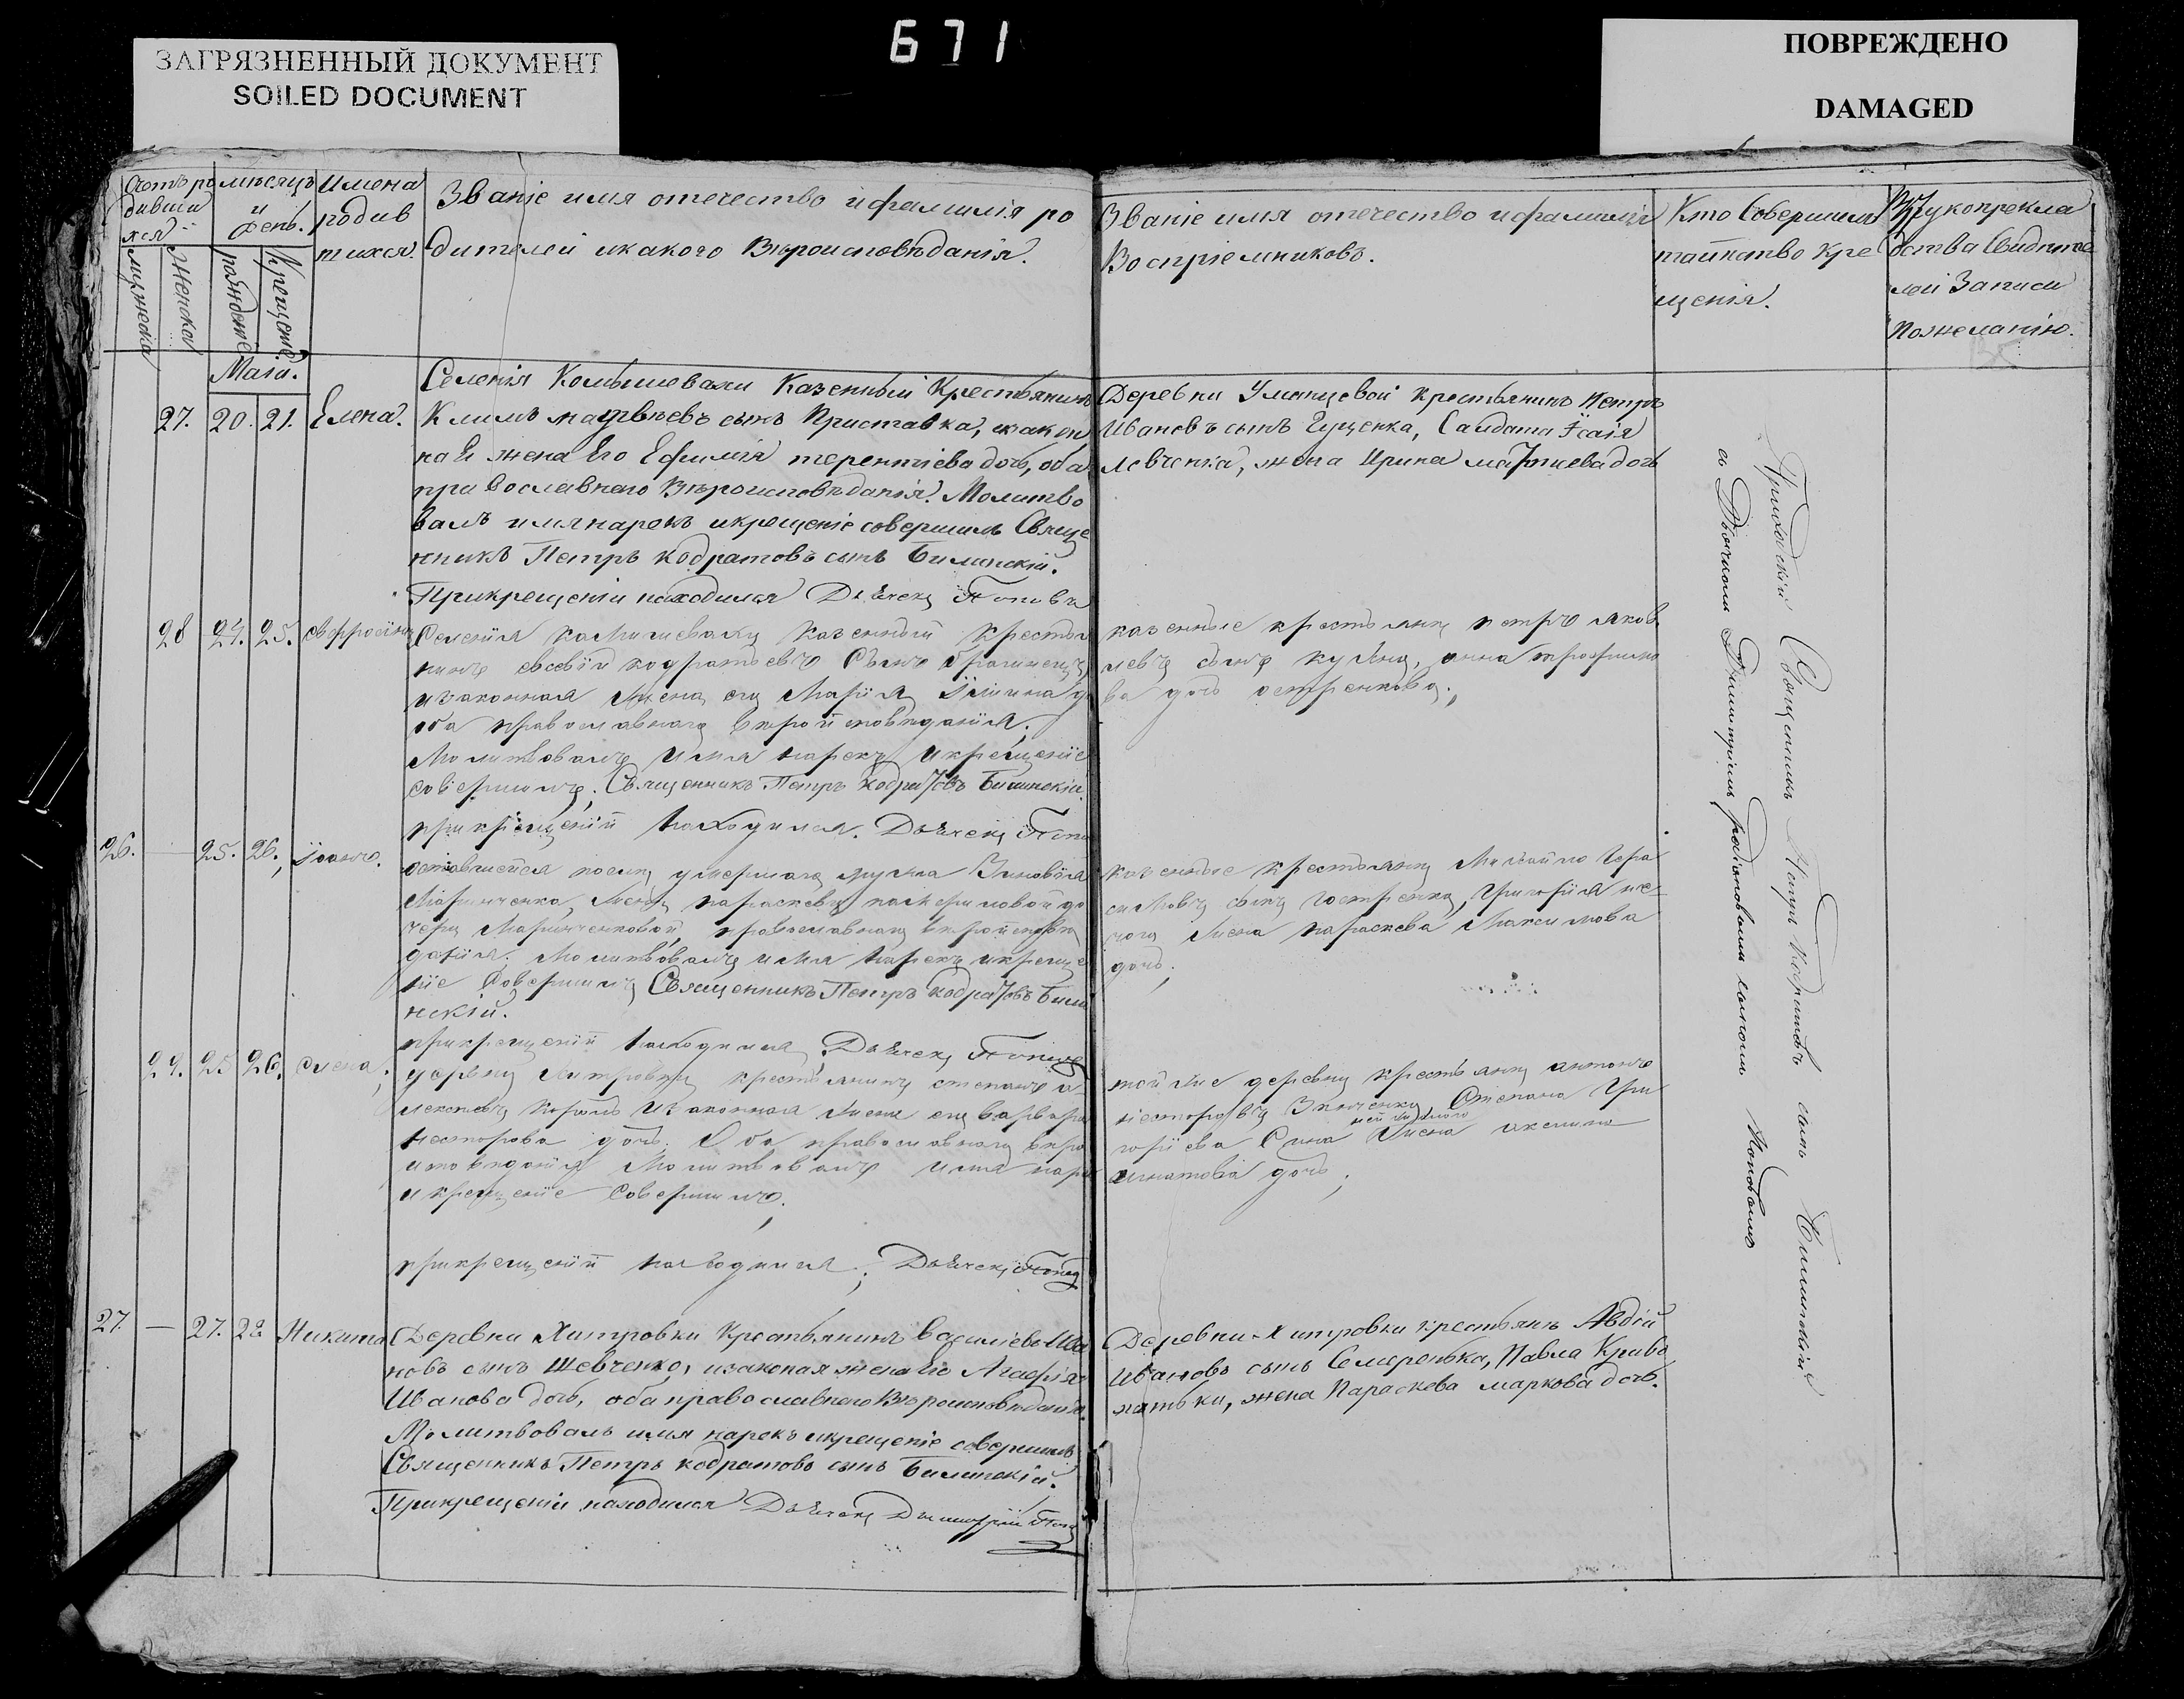 ЗАГРЯЗНЕННЫЙ ДОКУМЕНТ
SOILED DOCUMENT
671
ПОВРЕЖДЕНО
DAMAGED
Счетъ ро
дивши
хся
мужеска
Женска
мѣсяцъ
и
день.
рожденіе
Крещеніе
Имена
родив
шихся.
Званіе имя отечество и фамилія ро
дителей и какого Вѣроисповѣданія.
Званіе имя отечество и фамилія
Воспріемниковъ.
Кто Совершилъ
таинство кре
щенія.
Рукоприкла
дства Свидѣте
лей Записи
по желанію.
Маія.
27. 20. 21. Елена.
Селенія Комышевахи Казенный Крестьянинъ
Климъ матвѣевъ сынъ Приставка, и закон
ная жена Его Ефимія терентіева дочь, оба
православнаго Вѣроисповѣданія. Молитво
валъ имя нарекъ и крещеніе совершилъ Свяще
нникъ Петръ кодратовъ сынъ Билинскій.
При крещеніи находился Дьячекъ Поповъ
Деревни крестьянинъ Петръ
Ивановъ сынъ Гущенка, Салдата Ісаія
левченка, жена Ирина дочь
28 24. 25. евфросинія
Селенія камишевахи казенный крестья
нинъ евсевій кодратьевъ Сынъ
и законная жена его Марія дочь
оба православнаго вѣроисповѣданія.
Молитвовалъ имя нарекъ и крещеніе
совершилъ; Священникъ Петръ Кодратовъ Билинскій
при крещеніи находился. Дьячекъ Попов
казенные крестьяне петръ яков
левъ сынъ кулька, анна трофимо
ва дочь остренкова;
26. — 25. 26. іоанъ.
оставшейся послѣ умершаго мужа Зиновія
Маринченка, жены параскевы до
чери Маринченковой, православнаго вѣроисповѣ
данія. Молитвовалъ имя нарекъ и креще
ніе Совершилъ Священникъ Петръ кодратовъ Били
нскій.
при крещеніи находился, Дьячекъ Поповъ
казенные крестьяне Михайло Гера
симовъ сынъ гостренка, Григорія
жена параскева Максимова
дочь;
29. 25 26. елена;
деревни хитровки крестьянинъ степанъ а
лексѣевъ король и законная жена его варвара
несторова дочь. Оба православнаго вѣро
исповѣданія Молитвовалъ имя наре
и крещеніе совершилъ.
при крещеніи находился; Дьячекъ Поповъ
той же деревни крестьяне антонъ
несторовъ Степана Гри
горіева Сина жена акелина
игнатова дочь;
27. — 27. 28. Никита
Деревни Хитровки Крестьянинъ Василіевъ Ива
новъ сынъ Шевченко, и законая жена Его Агафія
Иванова дочь, оба православнаго Вѣроисповѣданія.
Молитвовалъ имя нарекъ и крещеніе совершилъ
Священникъ Петръ кодратовъ сынъ Билинскій.
При крещеніи находился Дьячекъ Димитрій Попов
Деревни Хитровки крестьянъ Авдій
Ивановъ сынъ Семеренька, Павла Криво
шапки, жена Параскева маркова дочь.
Приходскій Священникъ Петръ Кодратовъ сынъ Билинскій
съ Дьячкомъ Димитріемъ родіоновымъ сыномъ Поповымъ